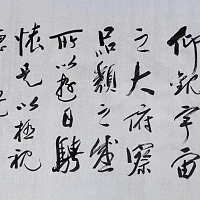 仰觀宇宙
之大俯察
品類之盛
所以遊目騁
懷足以極視